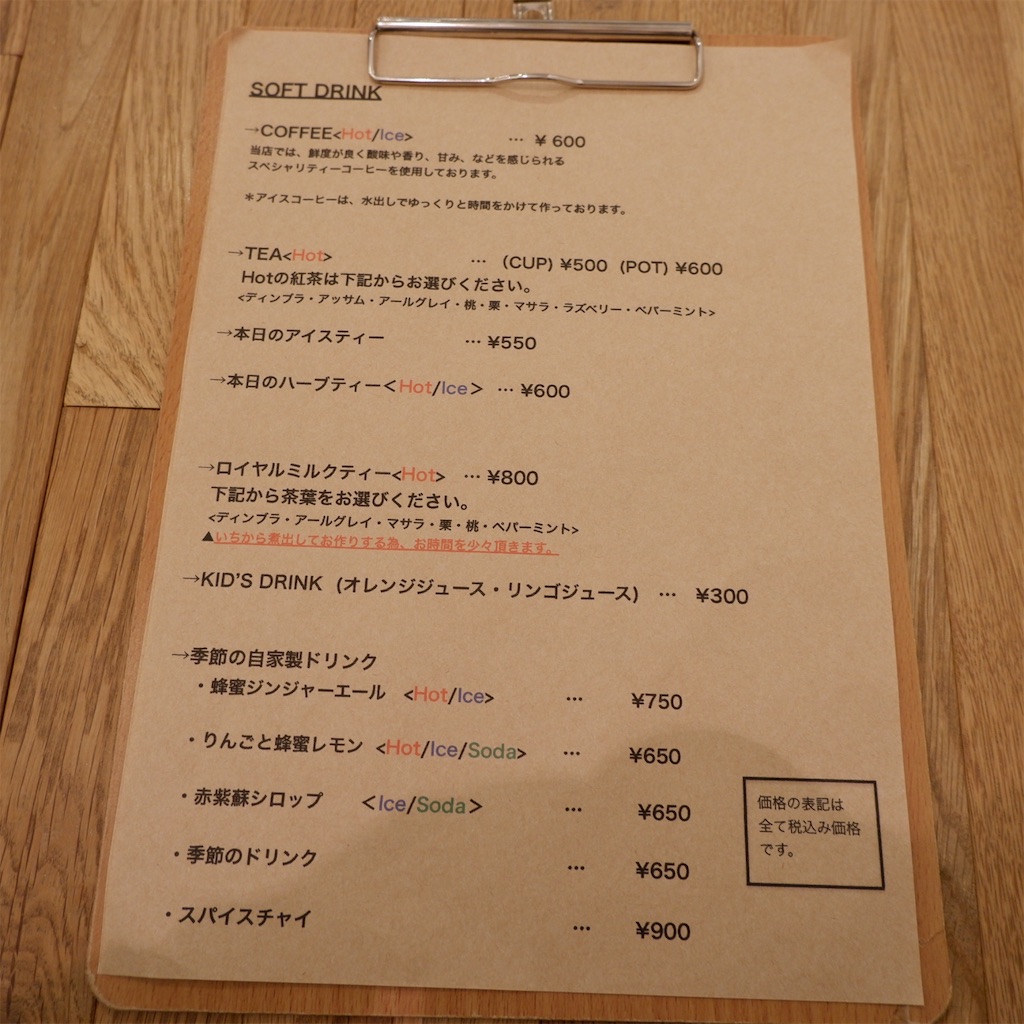 SOFT DRINK
→COFFEE<Hot/Ice> … ¥ 600
当店では、鮮度が良く酸味や香り、甘み、などを感じられる
スペシャリティーコーヒーを使用しております。
＊アイスコーヒーは、水出しでゆっくりと時間をかけて作っております。
→TEA<Hot> … (CUP) ¥500 (POT) ¥600
Hotの紅茶は下記からお選びください。
<ディンブラ・アッサム・アールグレイ・桃・栗・マサラ・ラズベリー・ペパーミント>
→本日のアイスティー … ¥550
→本日のハーブティー＜Hot/Ice＞ … ¥600
→ロイヤルミルクティー<Hot> … ¥800
下記から茶葉をお選びください。
<ディンブラ・アールグレイ・マサラ・栗・桃・ペパーミント>
▲いちから煮出してお作りする為、お時間を少々頂きます。
→KID'S DRINK (オレンジジュース・リンゴジュース) … ¥300
→季節の自家製ドリンク
・蜂蜜ジンジャーエール <Hot/Ice> … ¥750
・りんごと蜂蜜レモン <Hot/Ice/Soda> … ¥650
・赤紫蘇シロップ ＜Ice/Soda＞ … ¥650
・季節のドリンク … ¥650
・スパイスチャイ … ¥900
価格の表記は
全て税込み価格
です。